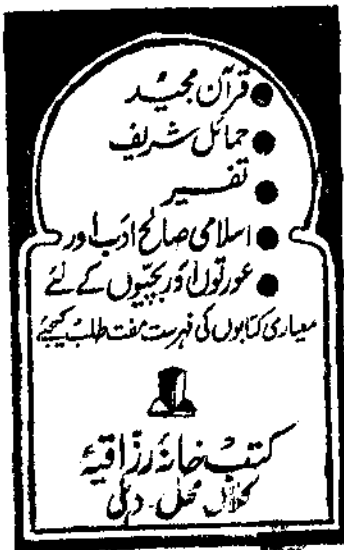 ● قرآن مجید
● حمائل شریف
● تفسیر
● اسلامی صالح ادب اور
● عورتوں اور بچیوں کے لئے
معیاری کتابوں کی فہرست مفت طلب کیجئے
کتب خانہ رزاقیہ
کلاں محل۔ دہلی